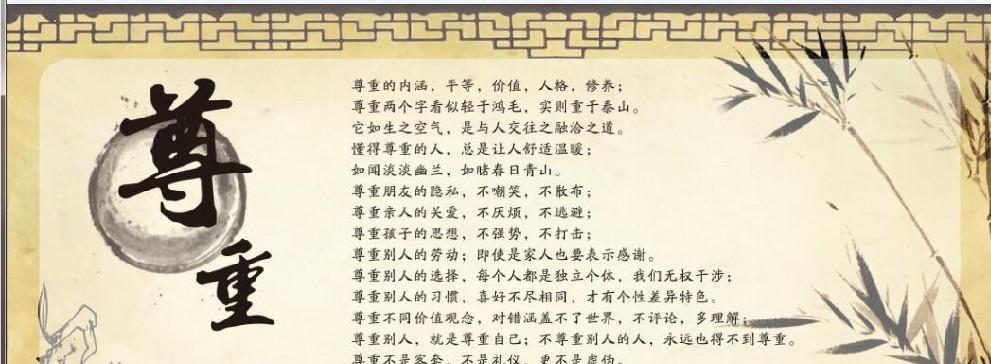 尊重
尊重的内涵，平等，价值，人格，修养；
尊重两个字看似轻于鸿毛，实则重于泰山。
它如生之空气，是与人交往之融洽之道。
懂得尊重的人，总是让人舒适温暖；
如闻淡淡幽兰，如睹春日青山。
尊重朋友的隐私，不嘲笑，不散布；
尊重亲人的关爱，不厌烦，不逃避；
尊重孩子的思想，不强势，不打击；
尊重别人的劳动；即使是家人也要表示感谢。
尊重别人的选择，每个人都是独立个体，我们无权干涉；
尊重别人的习惯，喜好不尽相同，才有个性差异特色。
尊重不同价值观念，对错涵盖不了世界，不评论，多理解；
尊重别人，就是尊重自己；不尊重别人的人，永远也得不到尊重。
尊重不是客套，不是礼仪，更不是虚伪。